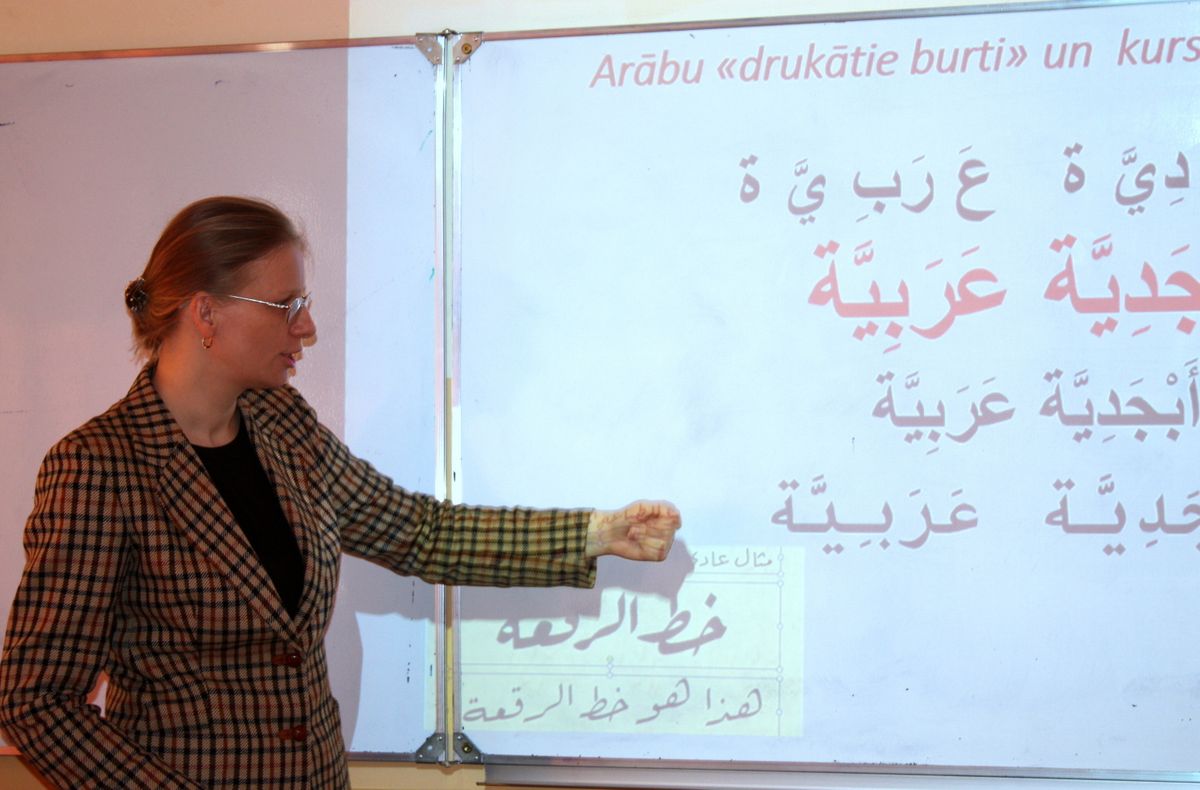 Arābu «drukātie burti» un kurs
دِ يَّ ة عَ رَ بِ يَّ ة
جَدِيَّة عَرَبِيَّة
أَبْجَدِيَّة عَرَبِيَّة
جَدِيَّة عَرَبِيَّة
مثال عادي
خط الرقعة
هذا هو خط الرقعة